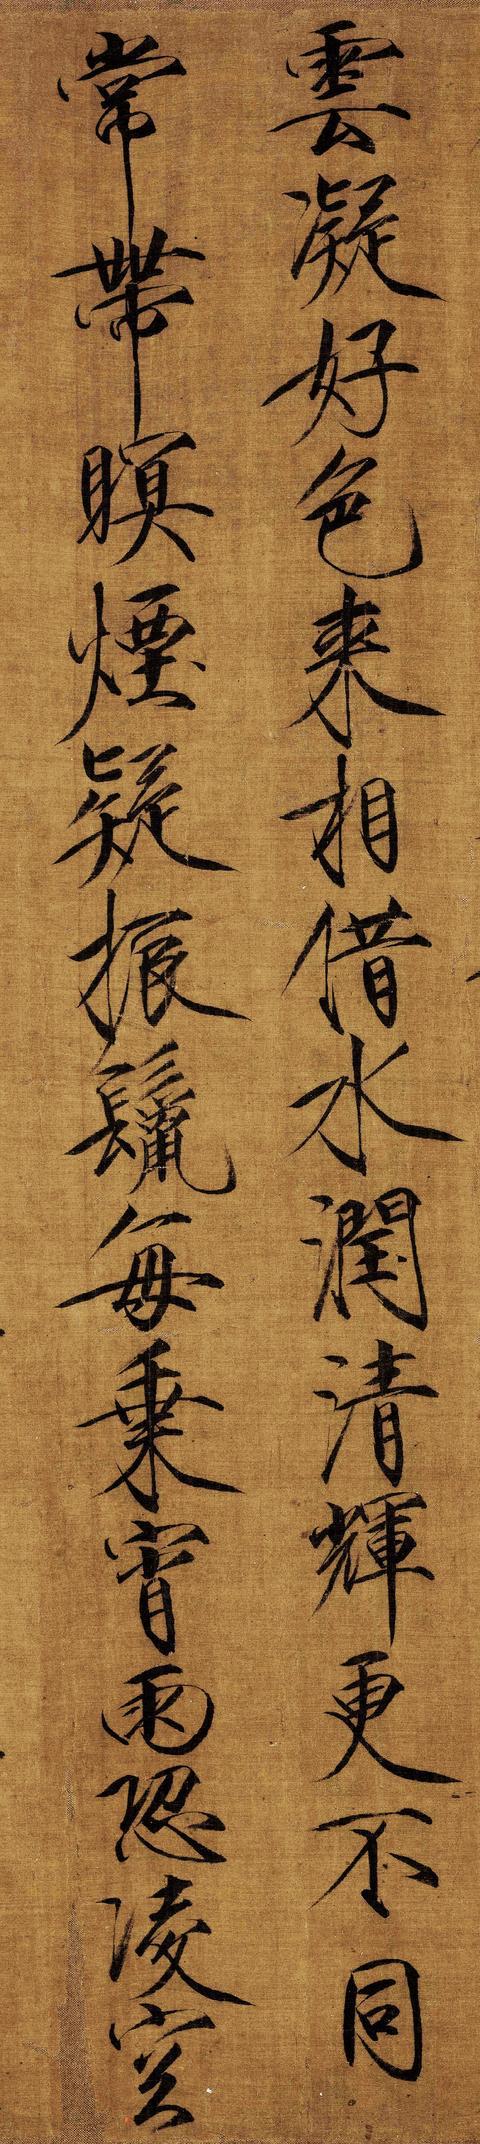 雲凝好色來相借水潤清輝更不同
常帶瞑煙疑振鬣每乗宵雨恐凌空